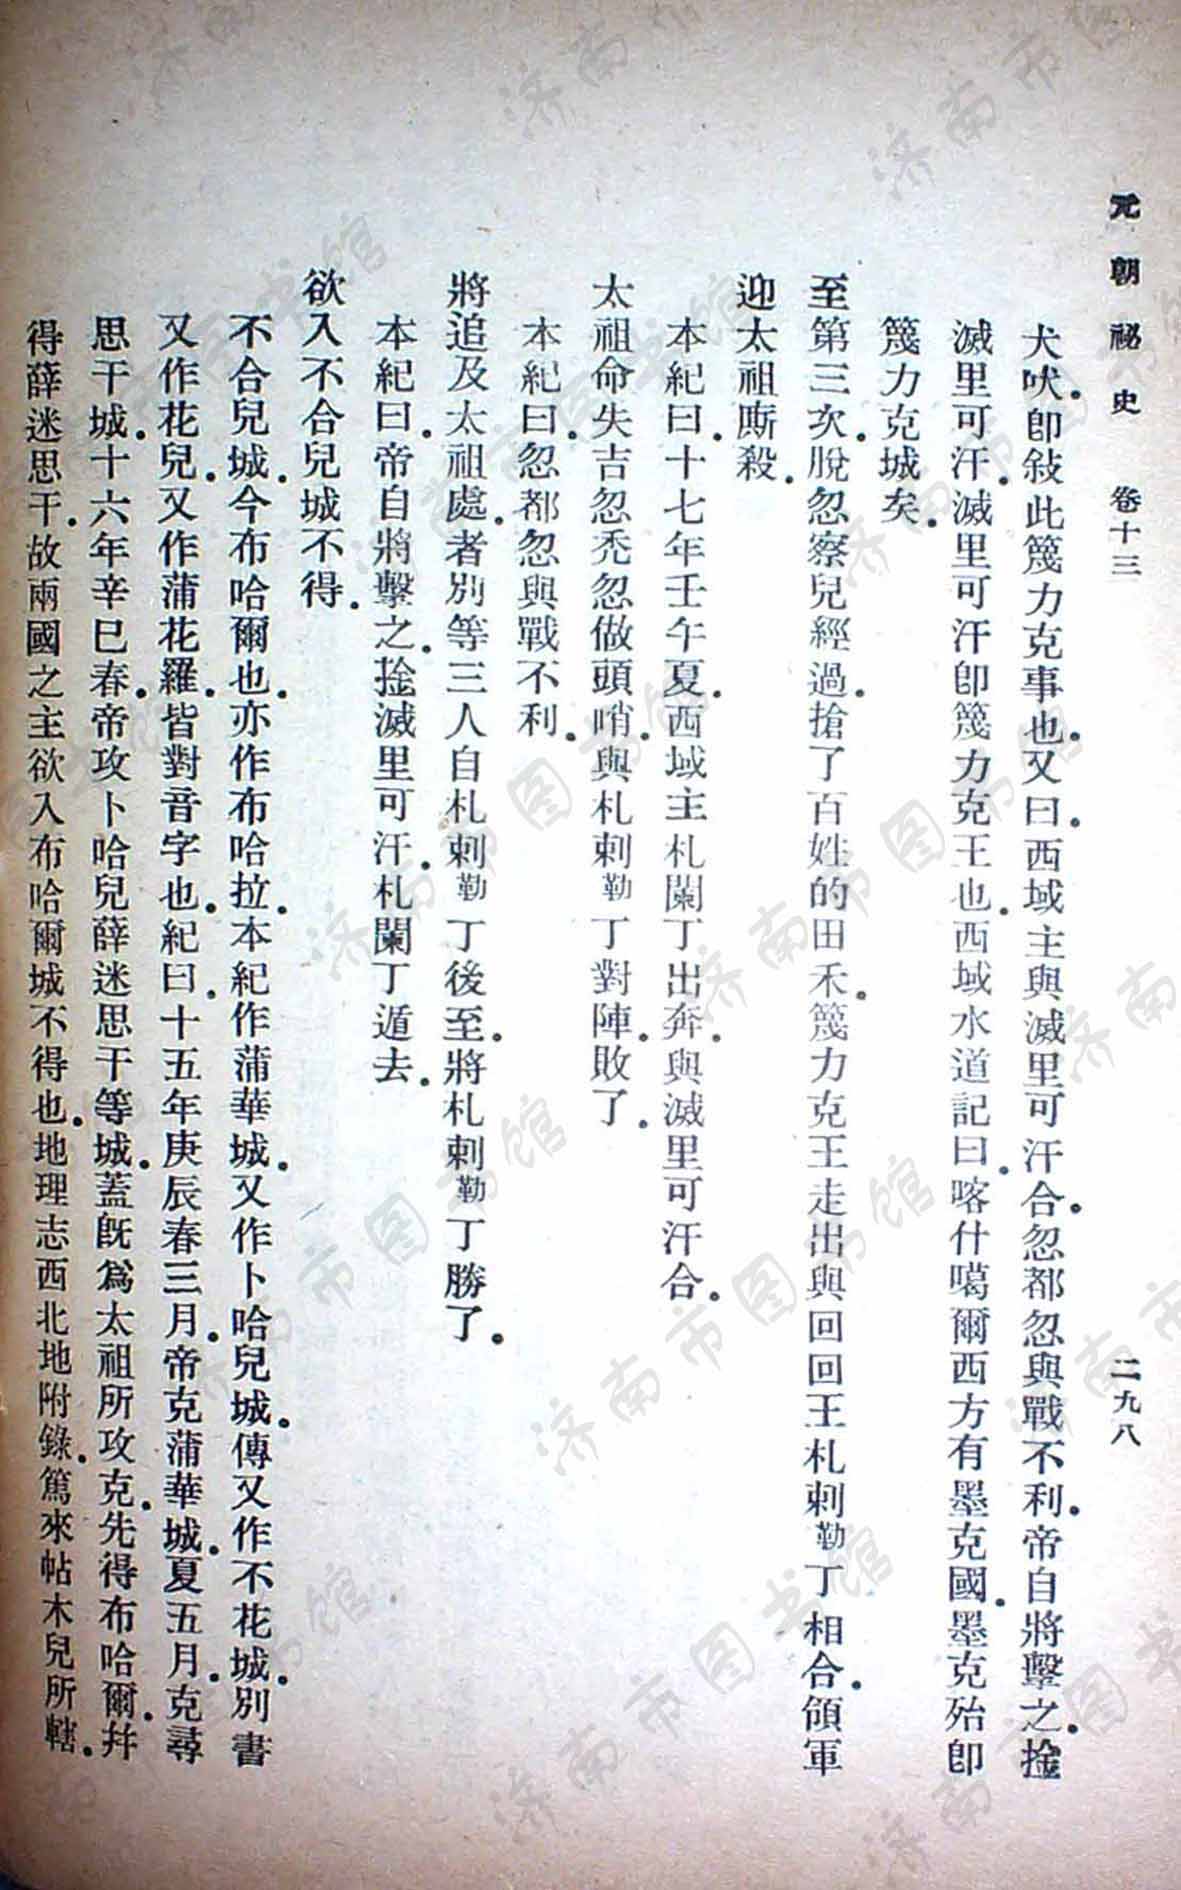 元朝祕史 卷十三 二九八
犬吠。卽敍此篾力克事也。又曰。西域主與滅里可汗合。忽都忽與戰不利。帝自將擊之。擒
滅里可汗。滅里可汗卽篾力克王也。西域水道記曰。喀什噶爾西方有墨克國。墨克殆卽
篾力克城矣。
至第三次。脫忽察兒經過。搶了百姓的田禾。篾力克王走出與回回王札剌勒丁相合。領軍
迎太祖廝殺。
本紀曰。十七年壬午夏。西域主札闌丁出奔。與滅里可汗合。
太祖命失吉忽禿忽做頭哨。與札剌勒丁對陣。敗了。
本紀曰。忽都忽與戰不利。
將追及太祖處。者別等三人自札剌勒丁後至。將札剌勒丁勝了。
本紀曰。帝自將擊之。擒滅里可汗。札闌丁遁去。
欲入不合兒城不得。
不合兒城。今布哈爾也。亦作布哈拉。本紀作蒲華城。又作卜哈兒城。傳又作不花城。別書
又作花兒。又作蒲花羅。皆對音字也。紀曰。十五年庚辰春三月。帝克蒲華城。夏五月。克尋
思干城。十六年辛巳春。帝攻卜哈兒薛迷思干等城。蓋旣爲太祖所攻克。先得布哈爾。幷
得薛迷思干。故兩國之主欲入布哈爾城不得也。地理志西北地附錄。篤來帖木兒所轄。
济南市图书馆